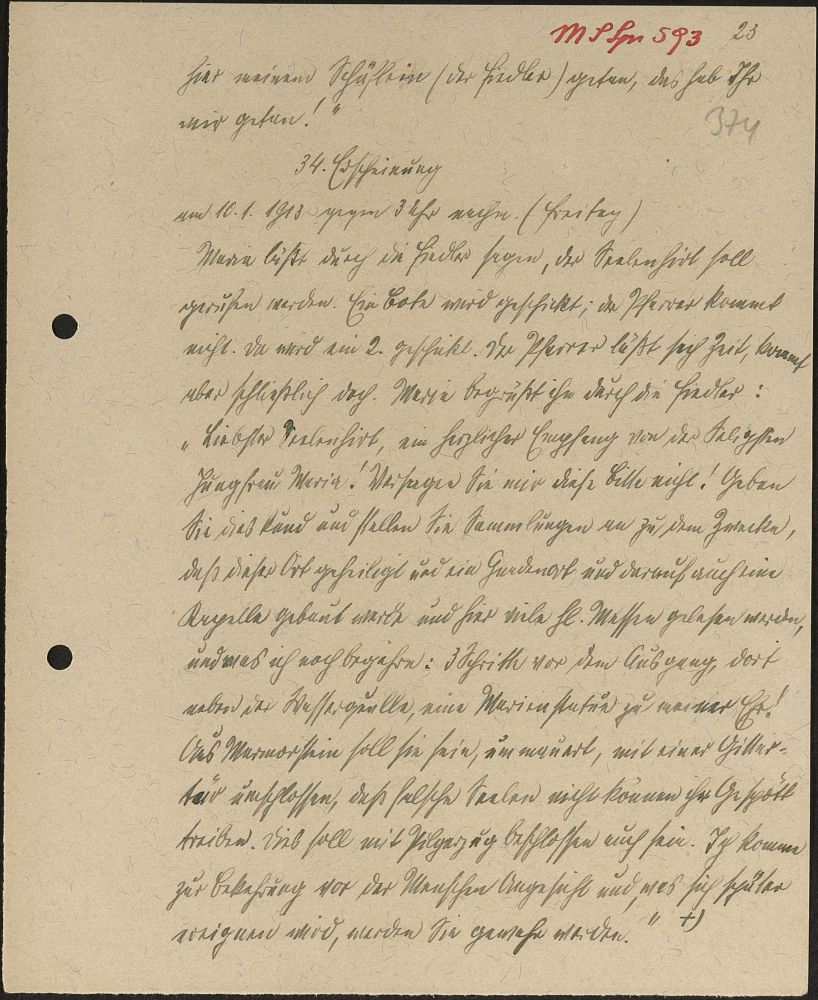 MS Spr 593 23
hier meinem Schäflein (der Fiedler) getan, das hab Ihr
374
mir getan!"
34. Erscheinung
am 10. 1. 1913 gegen 3 Uhr nachm. (Freitag)
Maria läßt durch die Fiedler sagen, der Seelenhirt soll
gerufen werden. Ein Bote wird geschickt; der Pfarrer kommt
nicht. Da wird ein 2. geschickt. Der Pfarrer läßt sich Zeit, kommt
aber schließlich doch. Maria begrüßt ihn durch die Fiedler:
„Liebster Seelenhirt, ein herzlicher Empfang von der Seligsten
Jungfrau Maria! Versagen Sie mir diese Bitte nicht! Geben
Sie dies kund und stellen Sie Sammlungen an zu dem Zwecke,
daß dieser Ort geheiligt und ein Gnadenort und darauf auch eine
Kapelle gebaut werde und hier viele hl. Messen gelesen werden,
und was ich noch begehre: 3 Schritte vor dem Ausgang, dort
neben der Wasserquelle, eine Marienstatue zu meiner Ehr!
Aus Marmorstein soll sie sein, ummauert, mit einer Gitter-
tür umschlossen, daß falsche Seelen nicht können ihr Gespött
treiben. Dies soll mit Pilgerzug beschlossen auch sein. Ich komme
zur Bekehrung vor der Menschen Angesicht und, was sich später
ereignen wird, werden Sie gewahr werden." +)